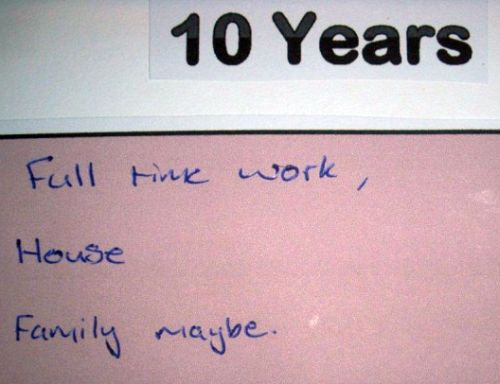 10 Years
Full time work,
House
Family maybe.